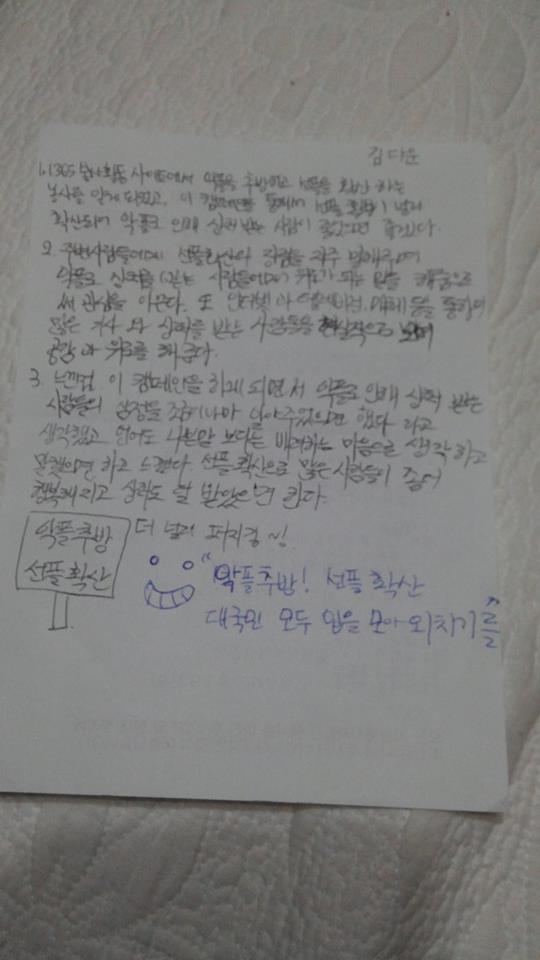 김다운
1. 1365 봉사활동 사이트에서 악플을 추방하고 선플을 확산 하는
봉사를 알게 되었고, 이 캠페인을 통해서 선플 확산이 널리
확산되어 악플로 인해 상처 받는 사람이 줄었으면 좋겠다.
2. 주변사람들에게 선플확산의 장점을 자주 말해주며
악플로 상처를 받는 사람들에게 위로가 되는 말을 해줌으로
써 관심을 아끈다. 또 인터넷 과 매체 등을 통하여
많은 기사 와 상처를 받는 사람들을 현실적으로 보며
공감 과 위로를 해 준다.
3. 느낀점 이 캠페인을 하게 되면서 악플로 인해 상처 받는
사람들의 심정들 조금이나마 나아주었으면 했다 라고
생각했고 언어도 나쁜말 보다는 배려하는 마음으로 생각하고
말했으면 하고 느꼈다. 선플확산으로 많은 사람들이 좀더
행복해지고 상처도 덜 받았으면 한다.
악플추방
선플확산
더 널리 퍼지길~!
"악플추방! 선플 확산
대국민 모두 입을 모아 외치기를"